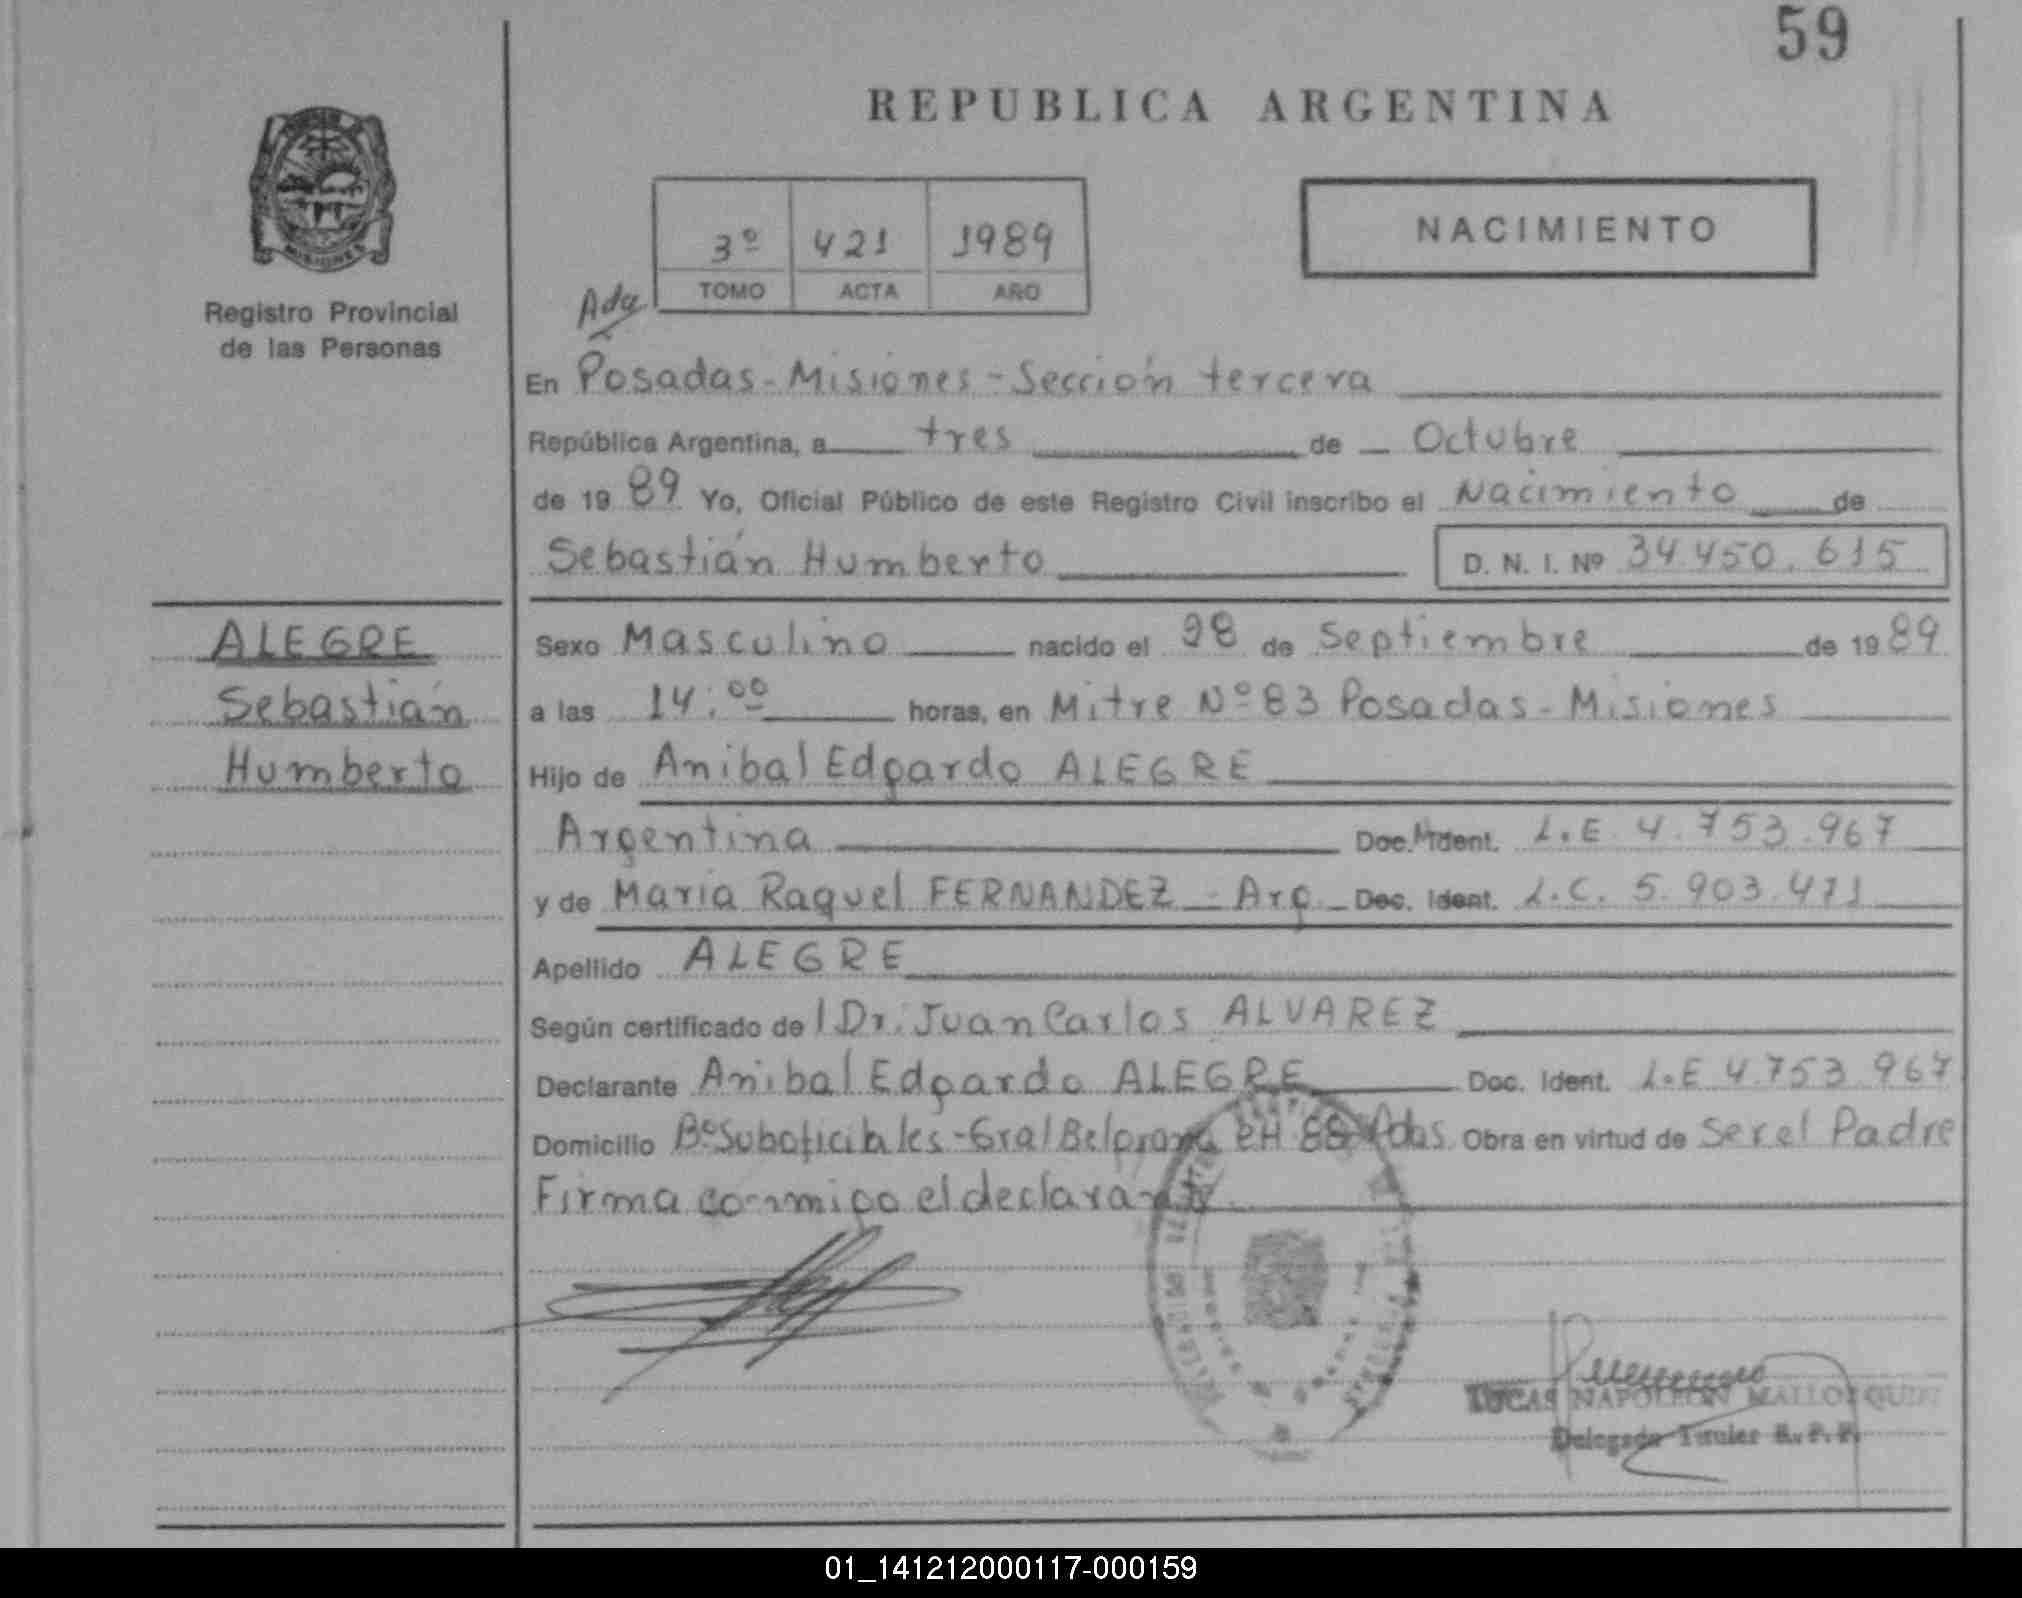 59
REPUBLICA ARGENTINA
NACIMIENTO
3º 421 1989
TOMO ACTA AÑO
Registro Provincial
de las Personas
Ada
En Posadas - Misiones - Sección tercera
República Argentina, a tres de Octubre
de 1989 Yo, Oficial Público de este Registro Civil inscribo el Nacimiento de
Sebastián Humberto D. N. I. Nº 34.450.615
ALEGRE
Sebastián
Humberto
Sexo Masculino nacido el 28 de Septiembre de 1989
a las 14:00 horas, en Mitre Nº 83 Posadas - Misiones
Hijo de Anibal Edgardo ALEGRE
Argentina Doc. Ident. L.E 4.753.967
y de Maria Raquel FERNANDEZ - Arg - Doc. Ident. L.C. 5.903.471
Apellido ALEGRE
Según certificado de l Dr. Juan Carlos ALVAREZ
Declarante Anibal Edgardo ALEGRE Doc. Ident. L.E 4.753.967
Domicilio Bº Suboficiales - Gral Belgrano CH 88 Pdas. Obra en virtud de Ser el Padre
Firma conmigo el declarante.
LUCAS NAPOLEON
Delegado Titular R. P. P.
01_141212000117-000159